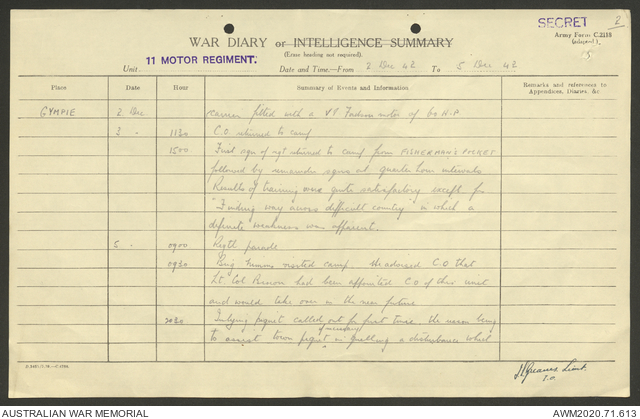 SECRET 2
Army Form C.2118
WAR DIARY or INTELLIGENCE SUMMARY
(Erase heading not required).
Unit 11 MOTOR REGIMENT. Date and Time—From 2 Dec 42 To 5 Dec 42
Place Date Hour Summary of Events and Information Remarks and references to Appendices, Diaries, &c
GYMPIE 2 Dec carrier fitted with a V8 motor of 60 H.P
3 " 1130 C.O returned to camp
1500 First sqn of rgt returned to camp from FISHERMAN'S POCKET
followed by remainder sqns at quarter hour intervals
Results of training were quite satisfactory except for
"Finding way across difficult country" in which a
definite weakness was apparent.
5 " 0900 Regtl parade
0930 Brig visited camp. He advised C.O that
Lt. Col had been appointed C.O of this unit
and would take over in the near future
2030 Inlying piquet called out for first time. The reason being
to assist town piquet if necessary in quelling a disturbance which
Lieut
I.O
AUSTRALIAN WAR MEMORIAL AWM2020.71.613